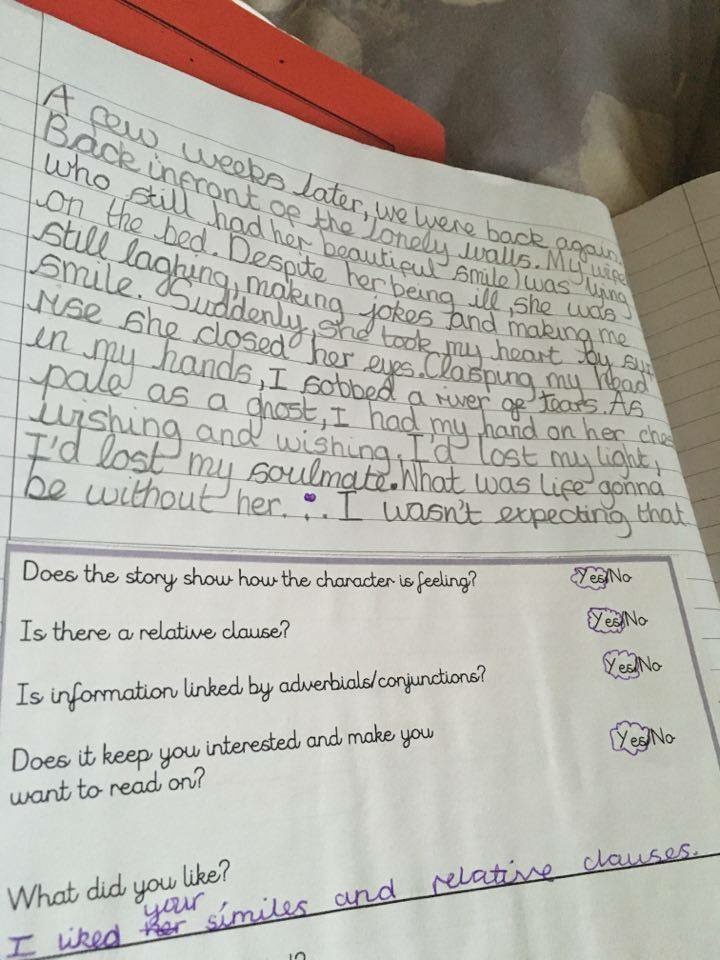 A few weeks later, we were back again.
Back infront of the lonely walls. My wife
who still had her beautiful smile) was lying
on the bed. Despite her being ill, she was
still laghing, making jokes and making me
smile. Suddenly, she took my heart by sup
rise she closed her eyes. Clasping my head
in my hands, I sobbed a river of tears. As
pale as a ghost, I had my hand on her ches
wishing and wishing. I'd lost my light,
I'd lost my soulmate. What was life gonna
be without her... I wasn't expecting that
Does the story show how the character is feeling? Yes/No
Is there a relative clause? Yes/No
Is information linked by adverbials/conjunctions? Yes/No
Does it keep you interested and make you Yes/No
want to read on?
What did you like?
your
I liked her similes and relative clauses.